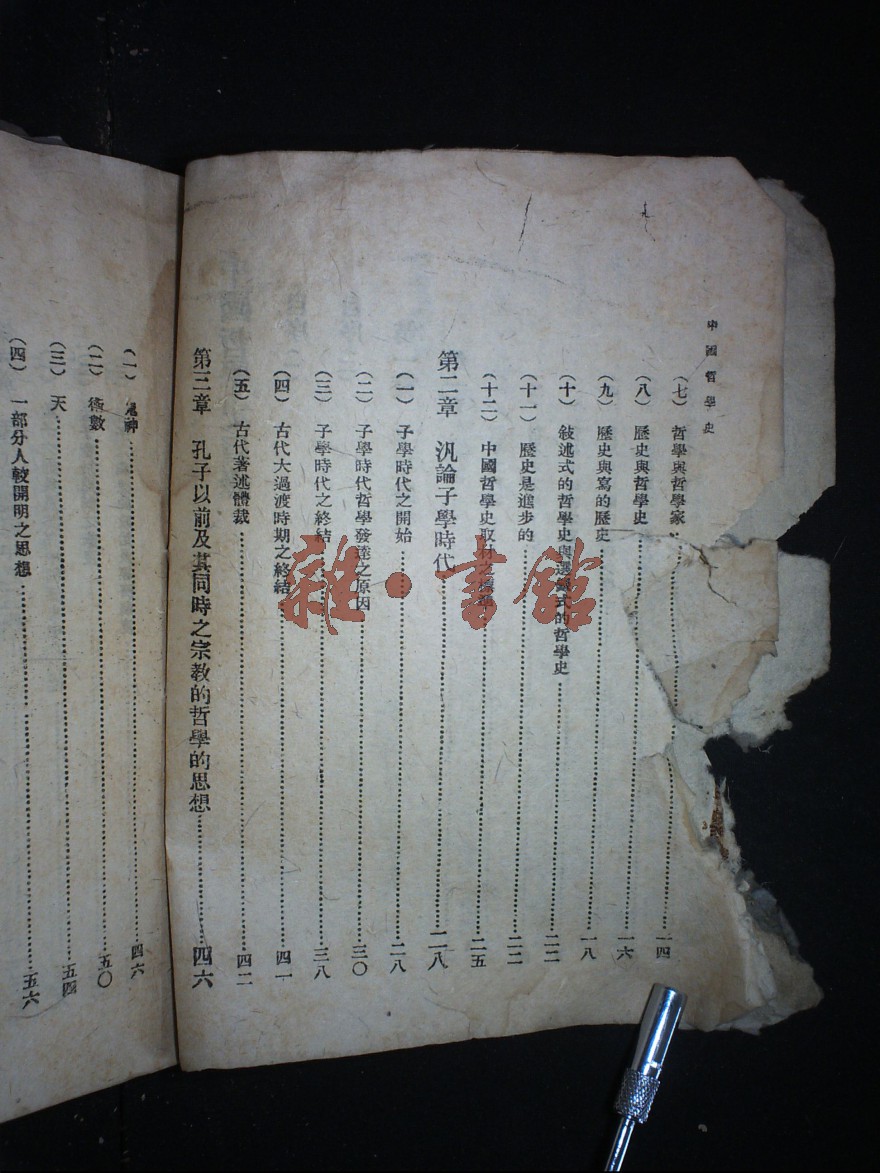 中國哲學史
（七） 哲學與哲學家 一四
（八） 歷史與哲學史 一六
（九） 歷史與寫的歷史 一八
（十） 敍述式的哲學史與選錄式的哲學史 二二
（十一） 歷史是進步的 二二
（十二） 中國哲學史取材之標準 二五
第二章 汎論子學時代 二八
（一） 子學時代之開始 二八
（二） 子學時代哲學發達之原因 三〇
（三） 子學時代之終結 三八
（四） 古代大過渡時期之終結 四一
（五） 古代著述體裁 四二
第三章 孔子以前及其同時之宗教的哲學的思想 四六
（一） 鬼神 四六
（二） 術數 五〇
（三） 天 五四
（四） 一部分人較開明之思想 五六
雜·書館